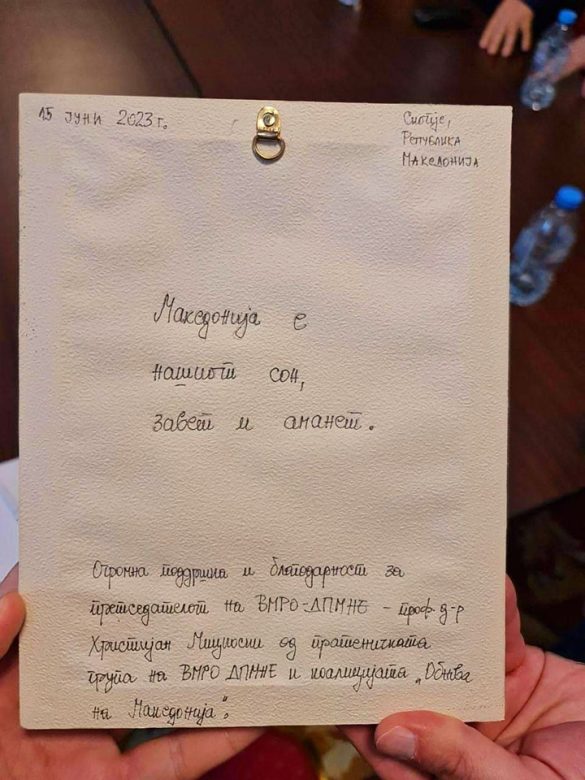 15 јуни 2023 г.
Скопје,
Република
Македонија
Македонија е
нашиот сон,
завет и аманет.
Огромна поддршка и благодарност за
претседателот на ВМРО-ДПМНЕ - проф. д-р
Христијан Мицкоски од пратеничката
група на ВМРО ДПМНЕ и коалицијата „Обнова
на Македонија“.